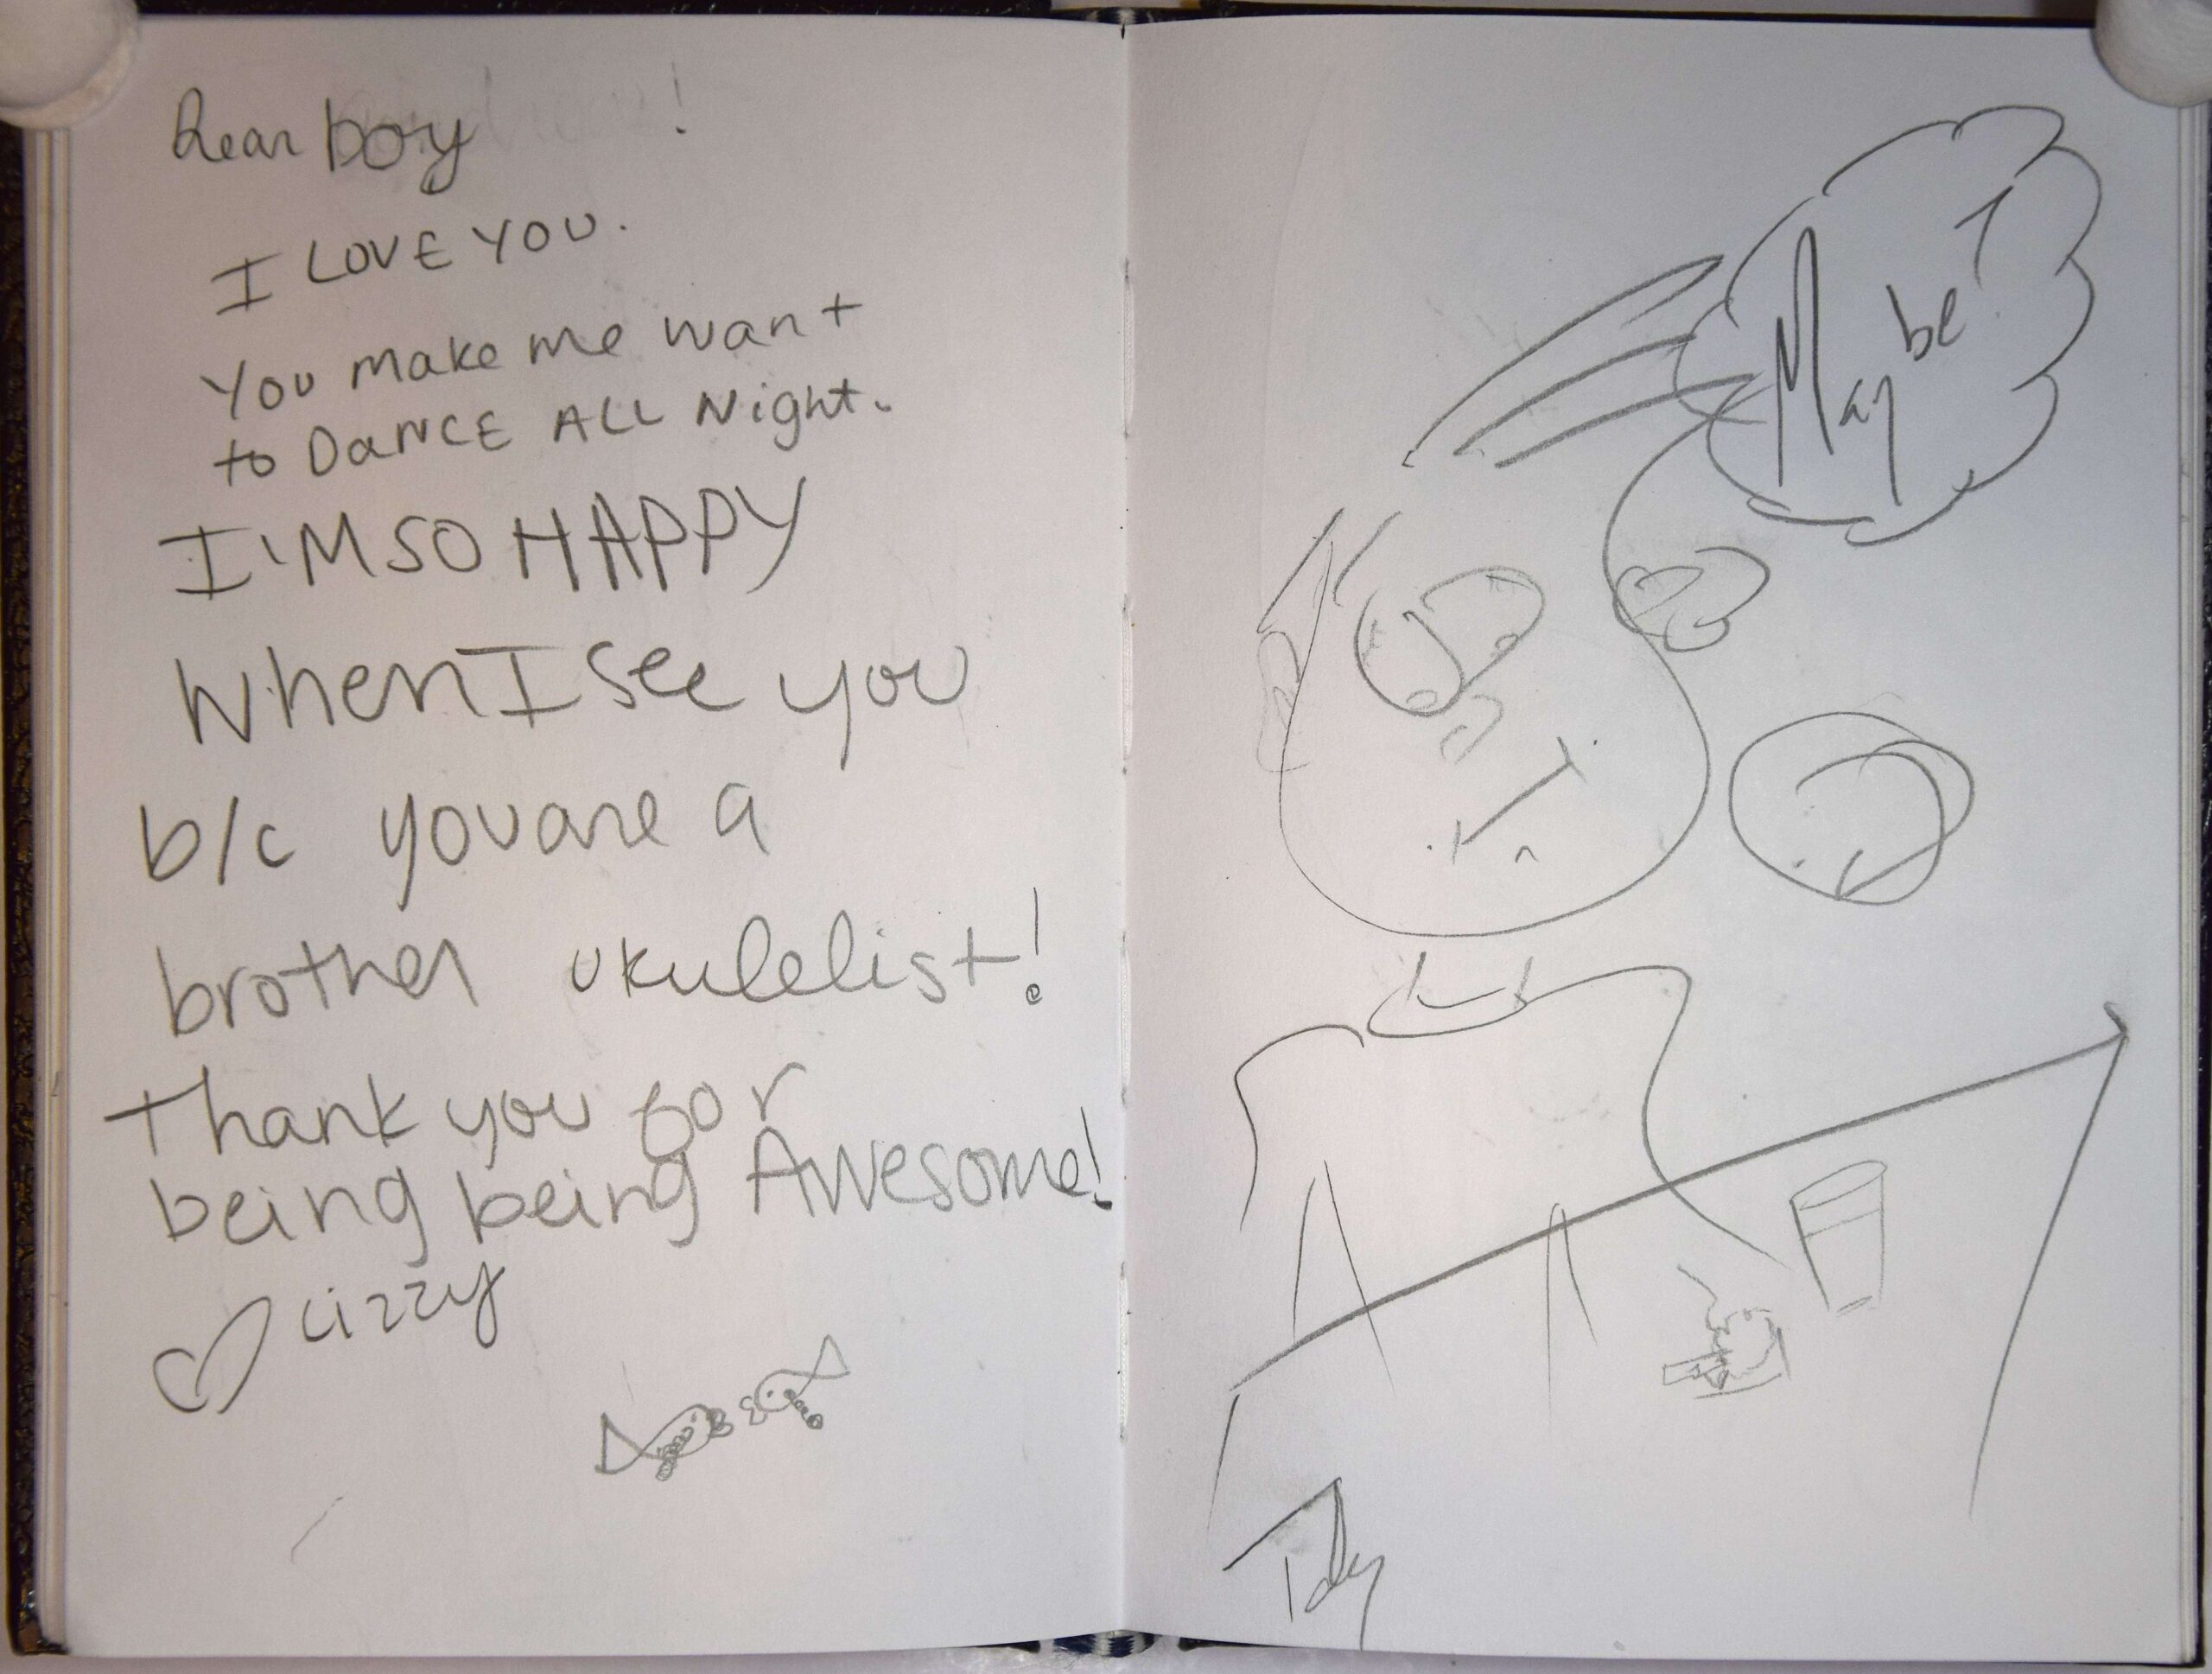 Dear boy !
I LOVE YOU.
YOU make me want
to DANCE ALL Night.
I'M SO HAPPY
when I see you
b/c you are a
brother ukulelist!
Thank you for
being being Awesome!
Lizzy
May be?